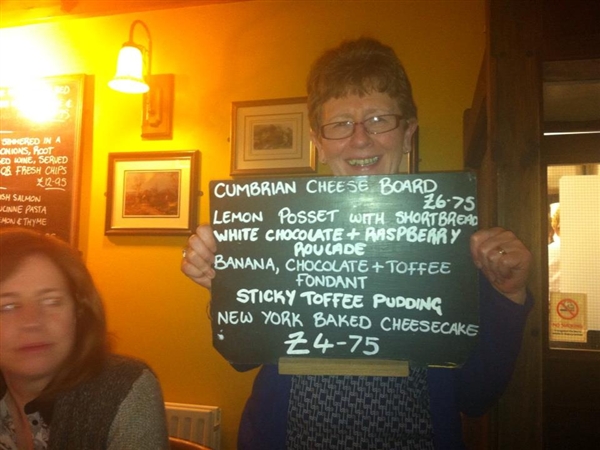 SIMMERED IN A
ONIONS, ROOT
RED WINE, SERVED
FRESH CHIPS
£12-95
SALMON
PASTA
& THYME
CUMBRIAN CHEESE BOARD
£6-75
LEMON POSSET WITH SHORTBREAD
WHITE CHOCOLATE + RASPBERRY
ROULADE
BANANA, CHOCOLATE + TOFFEE
FONDANT
STICKY TOFFEE PUDDING
NEW YORK BAKED CHEESECAKE
£4-75
NO SMOKING